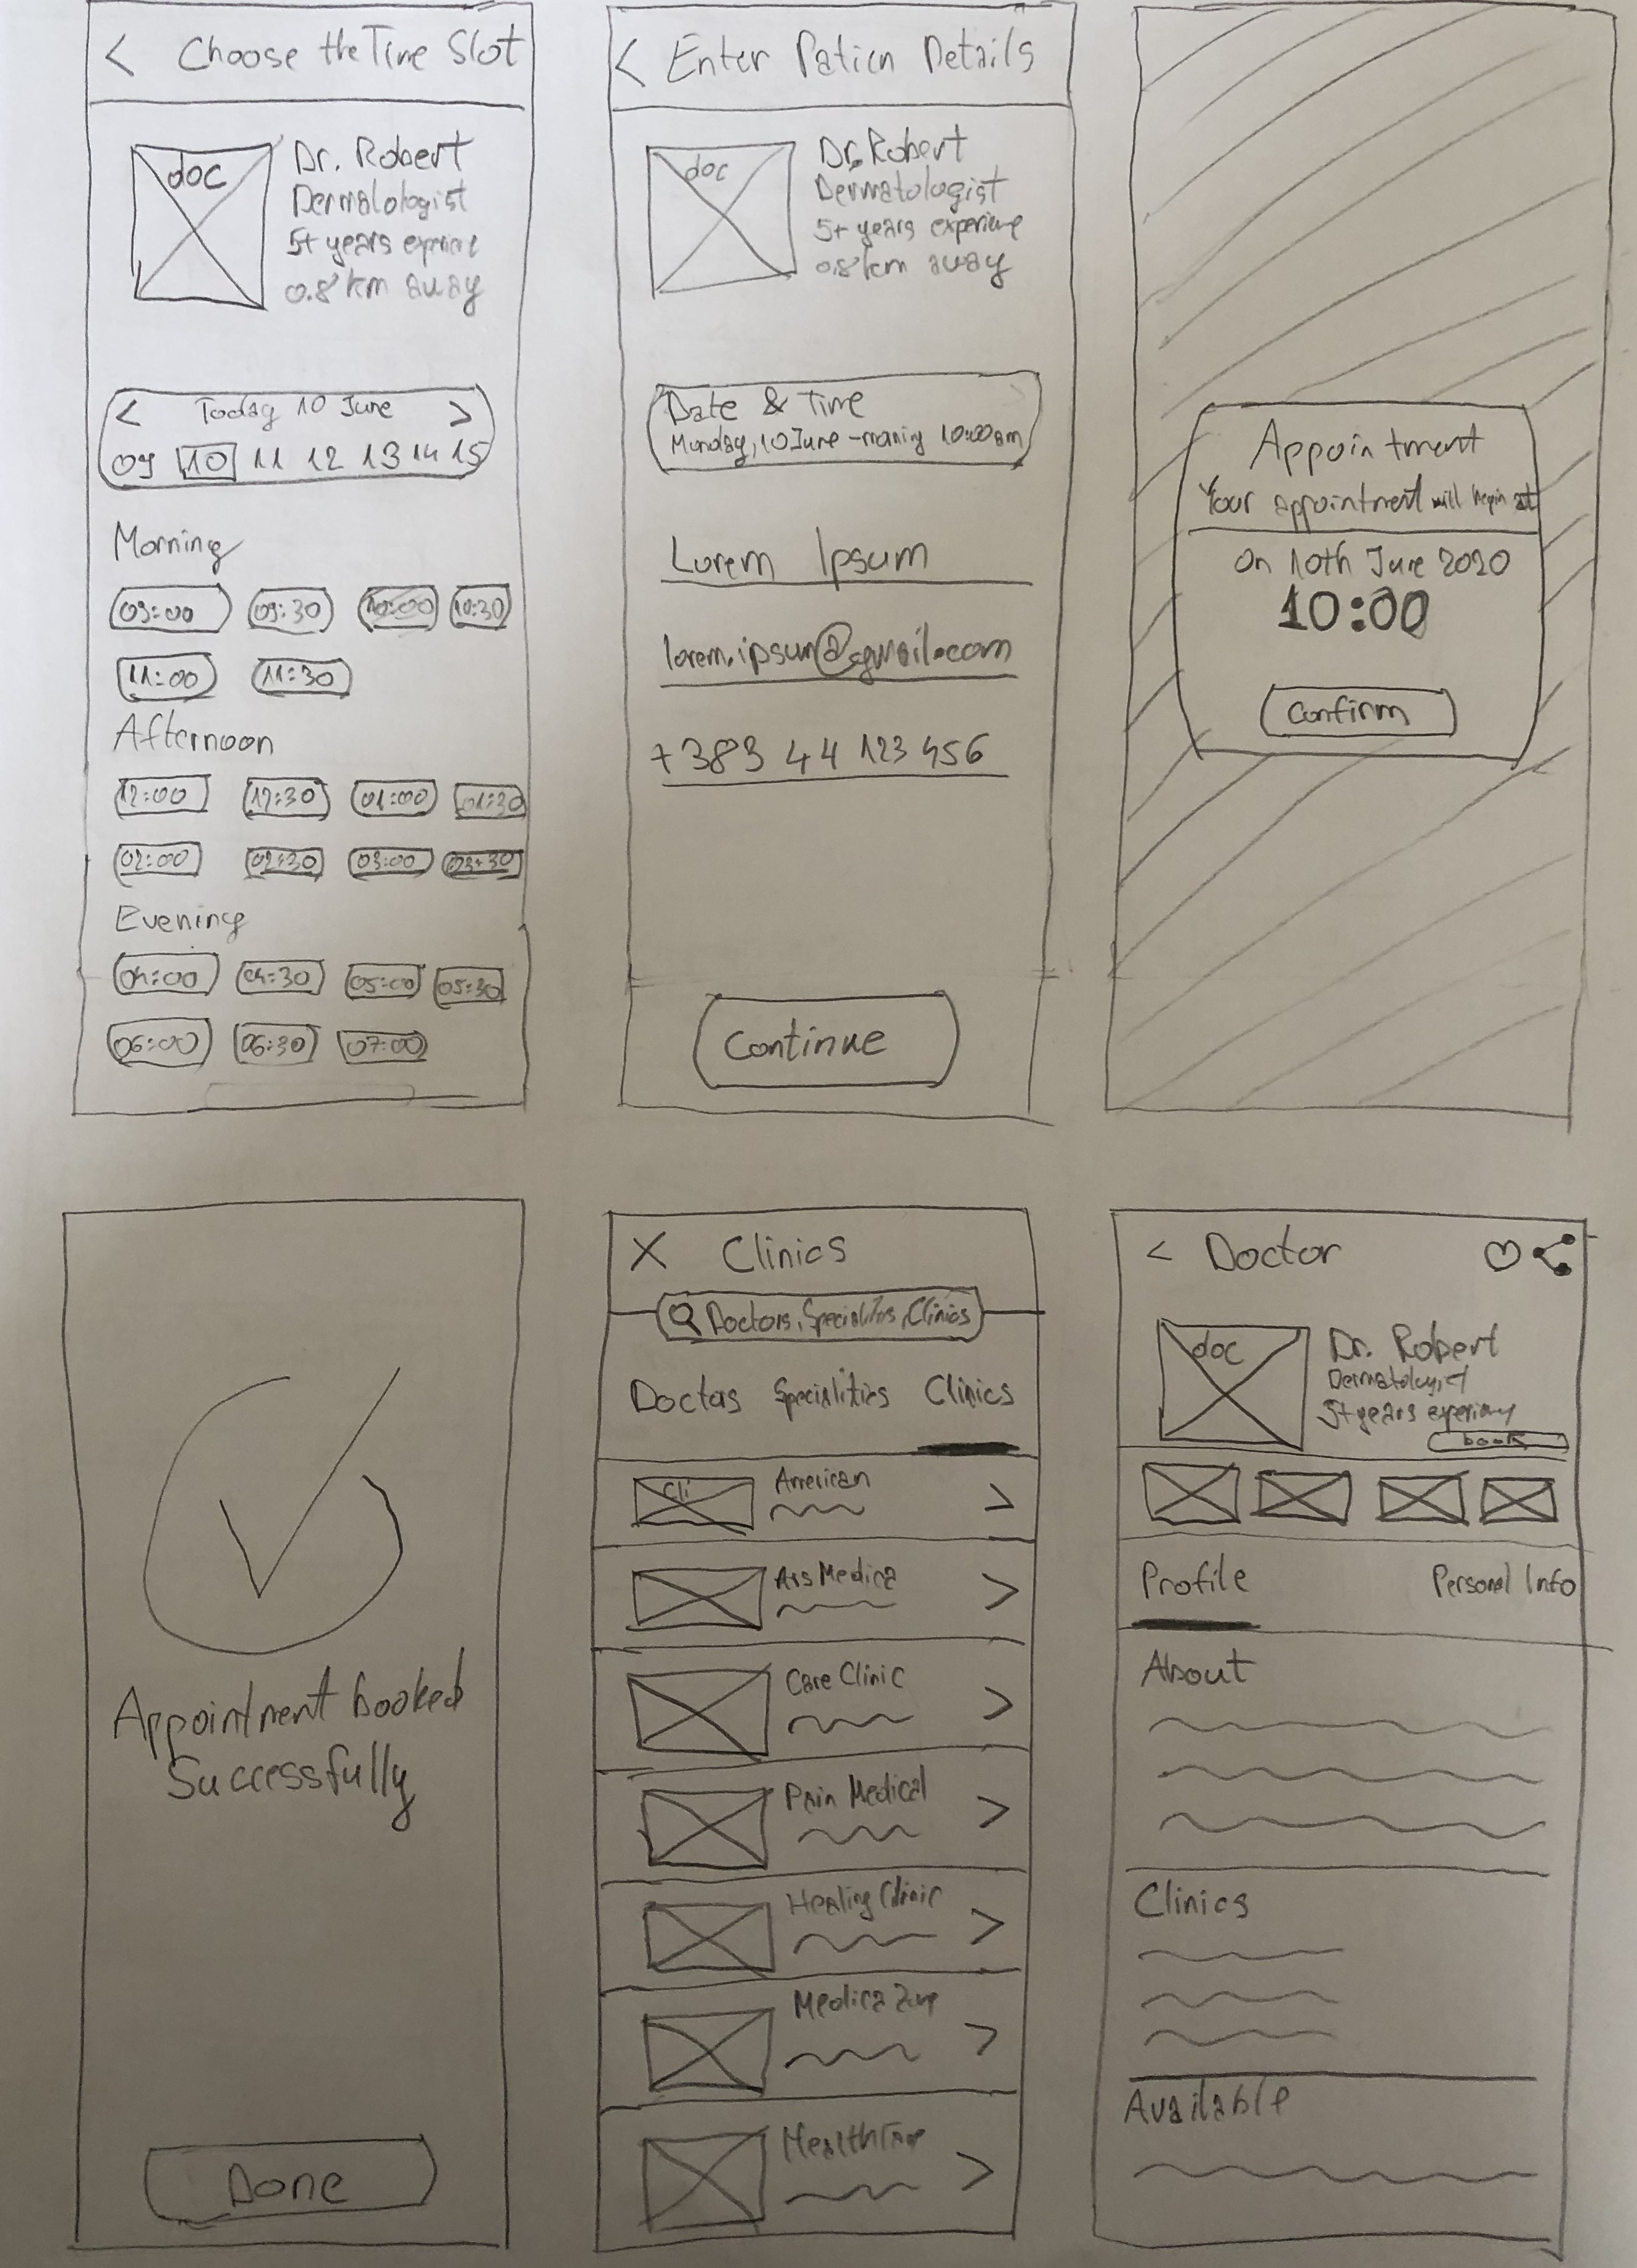 < Choose the Time Slot
doc
Dr. Robert
Dermalologist
5+ years experienc
0.8 km away
< Today 10 June >
09 10 11 12 13 14 15
Morning
09:00 09:30 10:00 10:30
11:00 11:30
Afternoon
12:00 12:30 01:00 01:30
02:00 02:30 03:00 03:30
Evening
04:00 04:30 05:00 05:30
06:00 06:30 07:00
< Enter Patien Details
doc
Dr. Robert
Dermatologist
5+ years experience
0.8 km away
Date & Time
Munday, 10 June - 10:00am
Lorem Ipsum
lorem.ipsum@gmail.com
+383 44 123 456
Continue
Appointment
Your appointment will begin at
On 10th June 2020
10:00
Confirm
Appointment booked
Successfully
Done
X Clinics
Doctors, Specialites, Clinics
Doctors Specialities Clinics
Cli
American
Ars Medica
Care Clinic
Pain Medical
Healing Clinic
Medica Zone
< Doctor
doc
Dr. Robert
Dermatologist
5+ years
book
Profile Personal Info
About
Clinics
Available